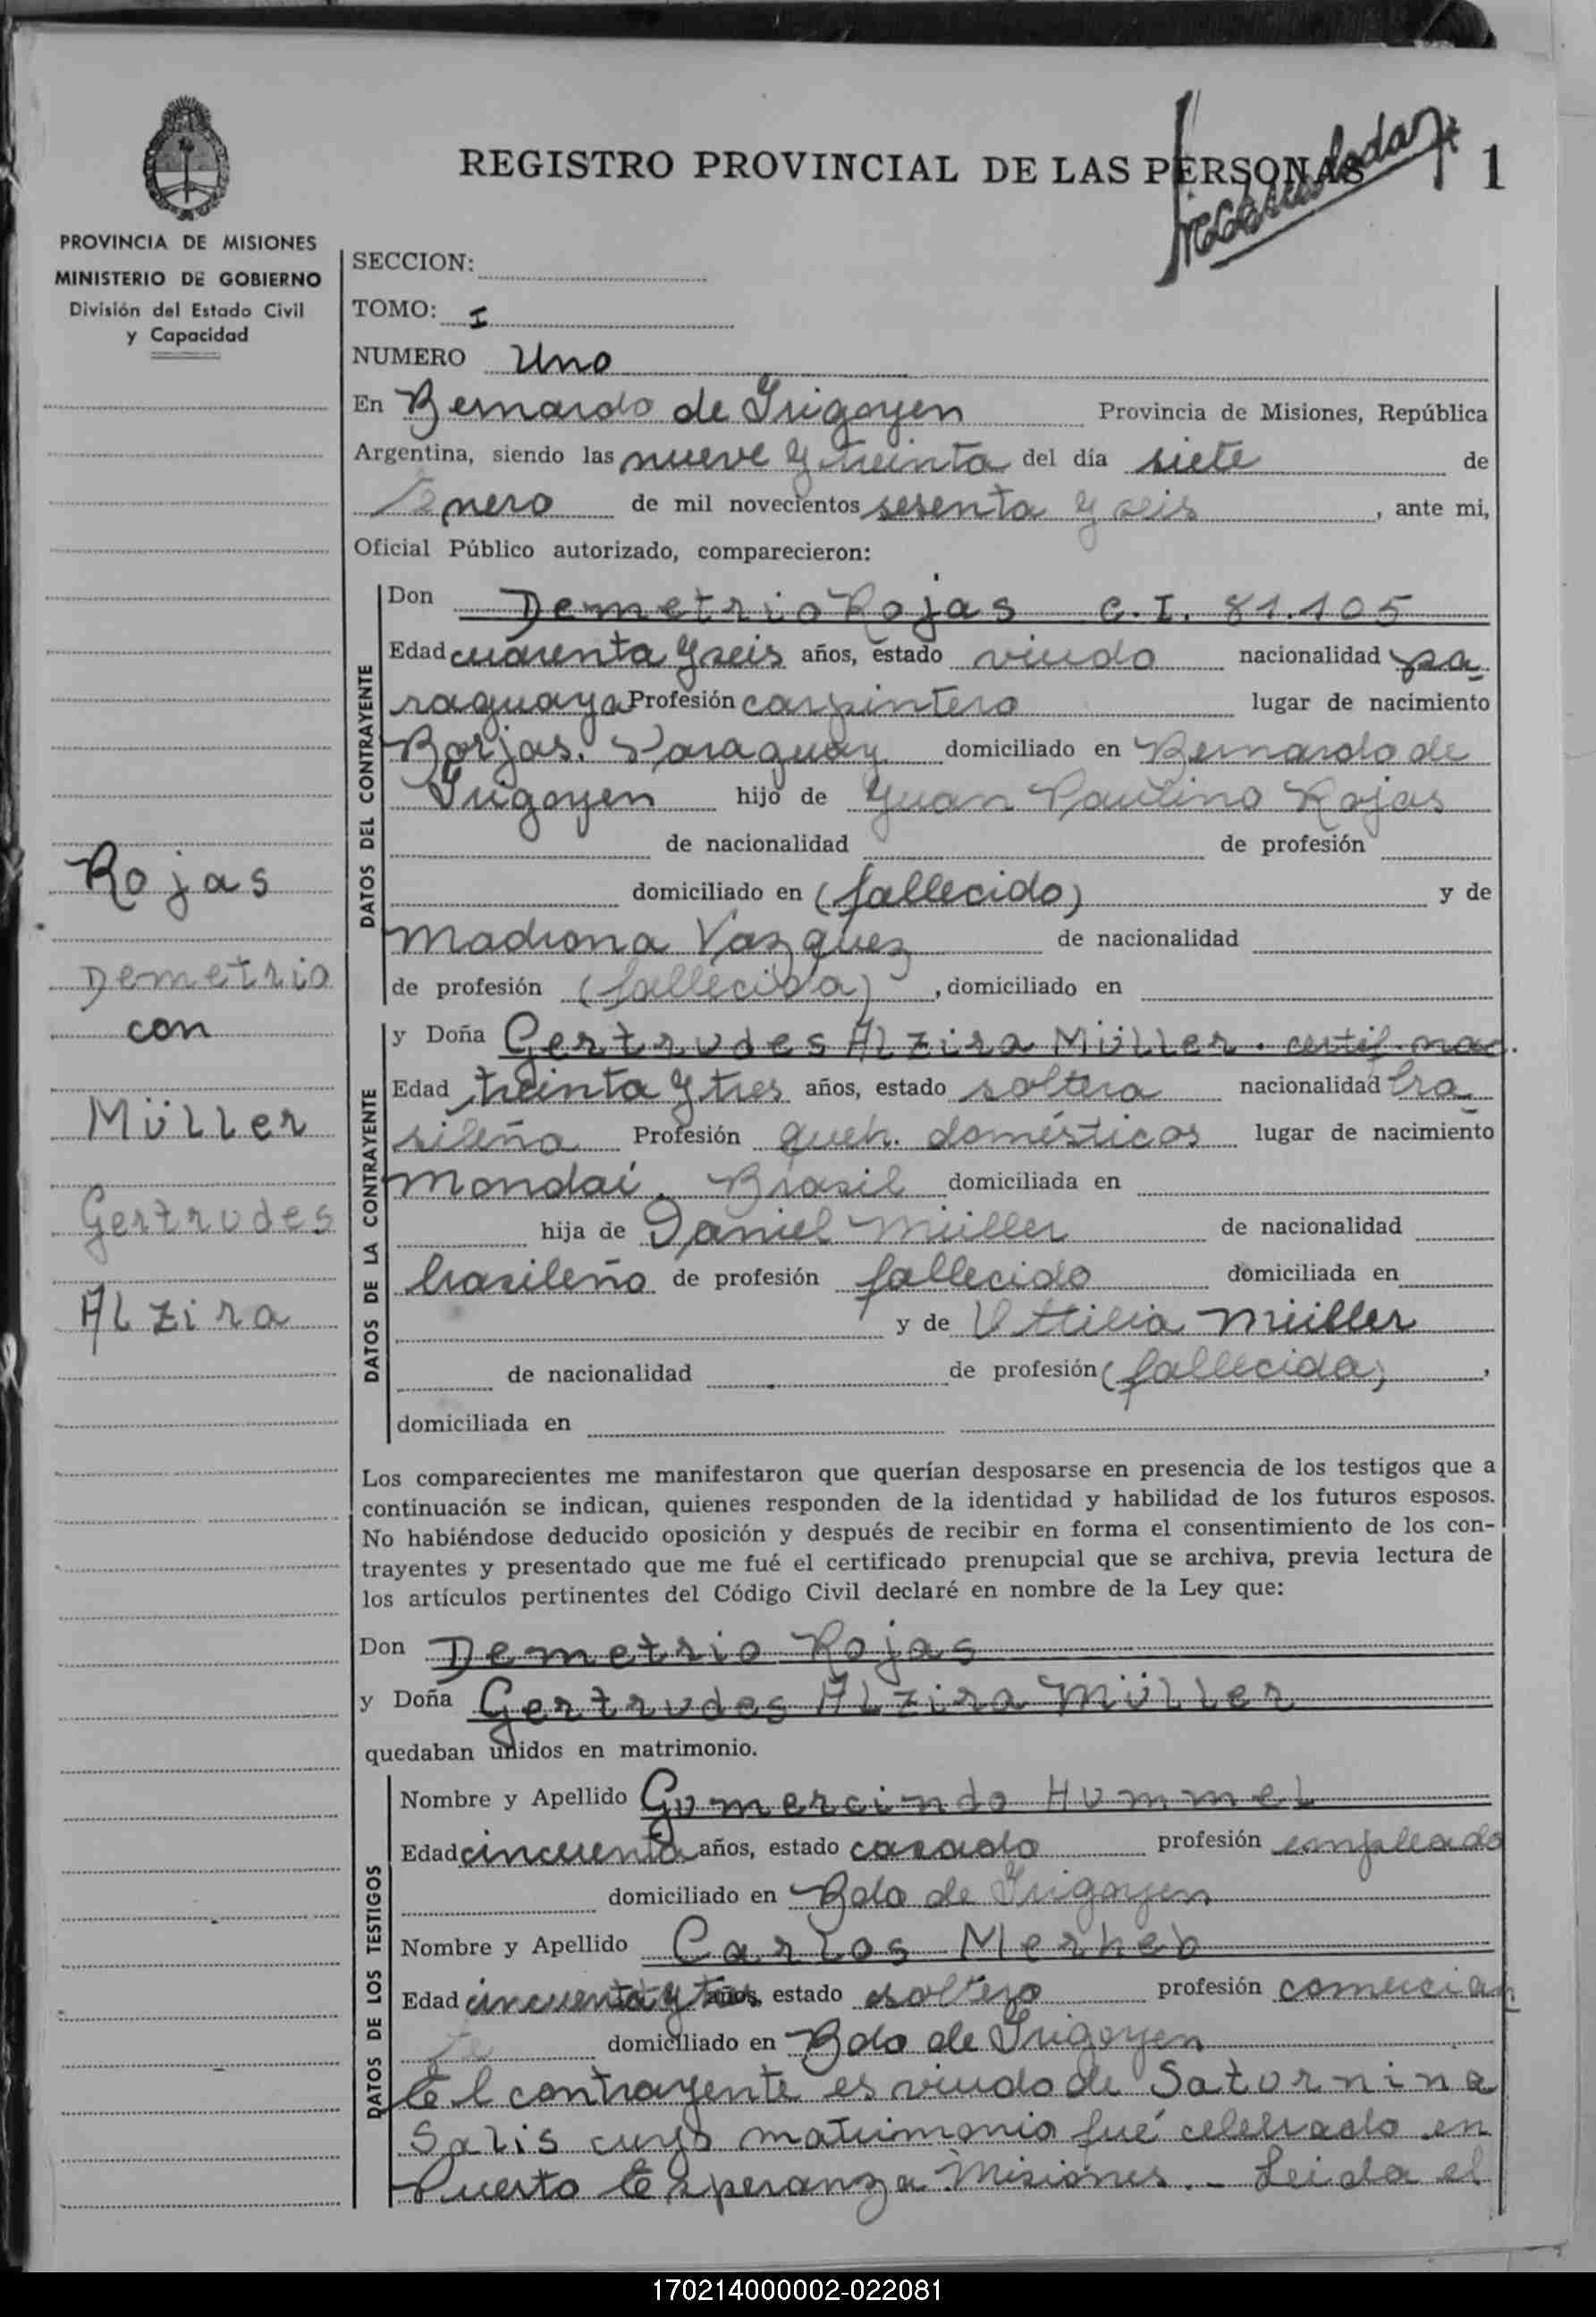 REGISTRO PROVINCIAL DE LAS PERSONAS
1
PROVINCIA DE MISIONES
MINISTERIO DE GOBIERNO
División del Estado Civil
y Capacidad
SECCION:
TOMO: I
NUMERO Uno
En Bernardo de Irigoyen Provincia de Misiones, República
Argentina, siendo las nueve y treinta del día siete de
Enero de mil novecientos sesenta y seis, ante mi,
Oficial Público autorizado, comparecieron:
DATOS DEL CONTRAYENTE
Don Demetrio Rojas C.I. 81.105
Edad cuarenta y seis años, estado viudo nacionalidad pa
raguaya Profesión carpintero lugar de nacimiento
Borjas. Paraguay domiciliado en Bernardo de
Irigoyen hijo de Juan Paulino Rojas
de nacionalidad de profesión
domiciliado en (fallecido) y de
Madrona Vazquez de nacionalidad
de profesión (fallecida), domiciliado en
DATOS DE LA CONTRAYENTE
y Doña Gertrudes Alzira Müller. certif. nac.
Edad treinta y tres años, estado soltera nacionalidad bra
sileña Profesión queh. domésticos lugar de nacimiento
Mondaí. Brasil domiciliada en
hija de Daniel Müller de nacionalidad
brasileño de profesión fallecido domiciliada en
y de Ottilia Müller
de nacionalidad de profesión (fallecida),
domiciliada en
Rojas
Demetrio
con
Müller
Gertrudes
Alzira
Los comparecientes me manifestaron que querían desposarse en presencia de los testigos que a
continuación se indican, quienes responden de la identidad y habilidad de los futuros esposos.
No habiéndose deducido oposición y después de recibir en forma el consentimiento de los con-
trayentes y presentado que me fué el certificado prenupcial que se archiva, previa lectura de
los artículos pertinentes del Código Civil declaré en nombre de la Ley que:
Don Demetrio Rojas
y Doña Gertrudes Alzira Müller
quedaban unidos en matrimonio.
DATOS DE LOS TESTIGOS
Nombre y Apellido Gumercindo Hummel
Edad cincuenta años, estado casado profesión empleado
domiciliado en Bdo de Irigoyen
Nombre y Apellido Carlos Merheb
Edad cincuenta y tres años, estado soltero profesión comercian
te domiciliado en Bdo de Irigoyen
El contrayente es viudo de Saturnina
Salis cuyo matrimonio fué celebrado en
Puerto Esperanza Misiones.- Leida el
170214000002-022081